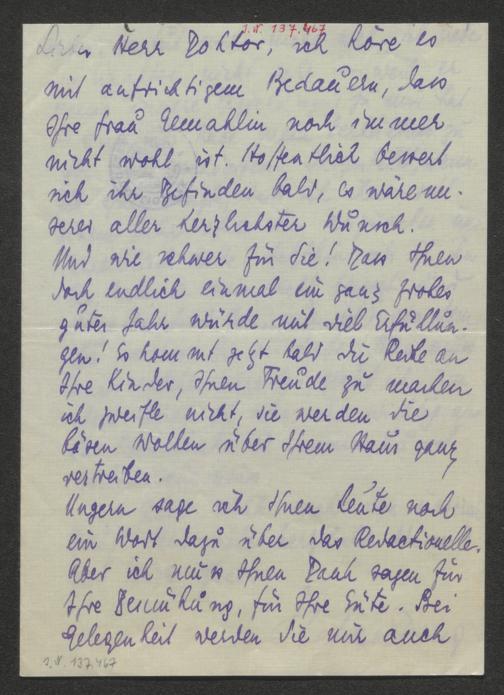 J.N. 137.467
Lieber Herr Doktor, ich höre es
mit aufrichtigem Bedauern, dass
Ihre Frau Gemahlin noch immer
nicht wohl ist. Hoffentlich bessert
sich ihr Befinden bald, es wäre un-
serer aller herzlichster Wunsch.
Und wie schwer für Sie! Dass Ihnen
doch endlich einmal ein ganz frohes
gutes Jahr würde mit viel Erfüllun-
gen! Es kommt jetzt bald die Reihe an
Ihre Kinder, Ihnen Freude zu machen
ich zweifle nicht, sie werden die
bösen Wolken über Ihrem Haus ganz
vertreiben.
Ungern sage ich Ihnen heute noch
ein Wort dazu über das Redactionelle.
Aber ich muss Ihnen Dank sagen für
Ihre Bemühung, für Ihre Güte. Bei
Gelegenheit werden Sie mir auch
J.N. 137.467